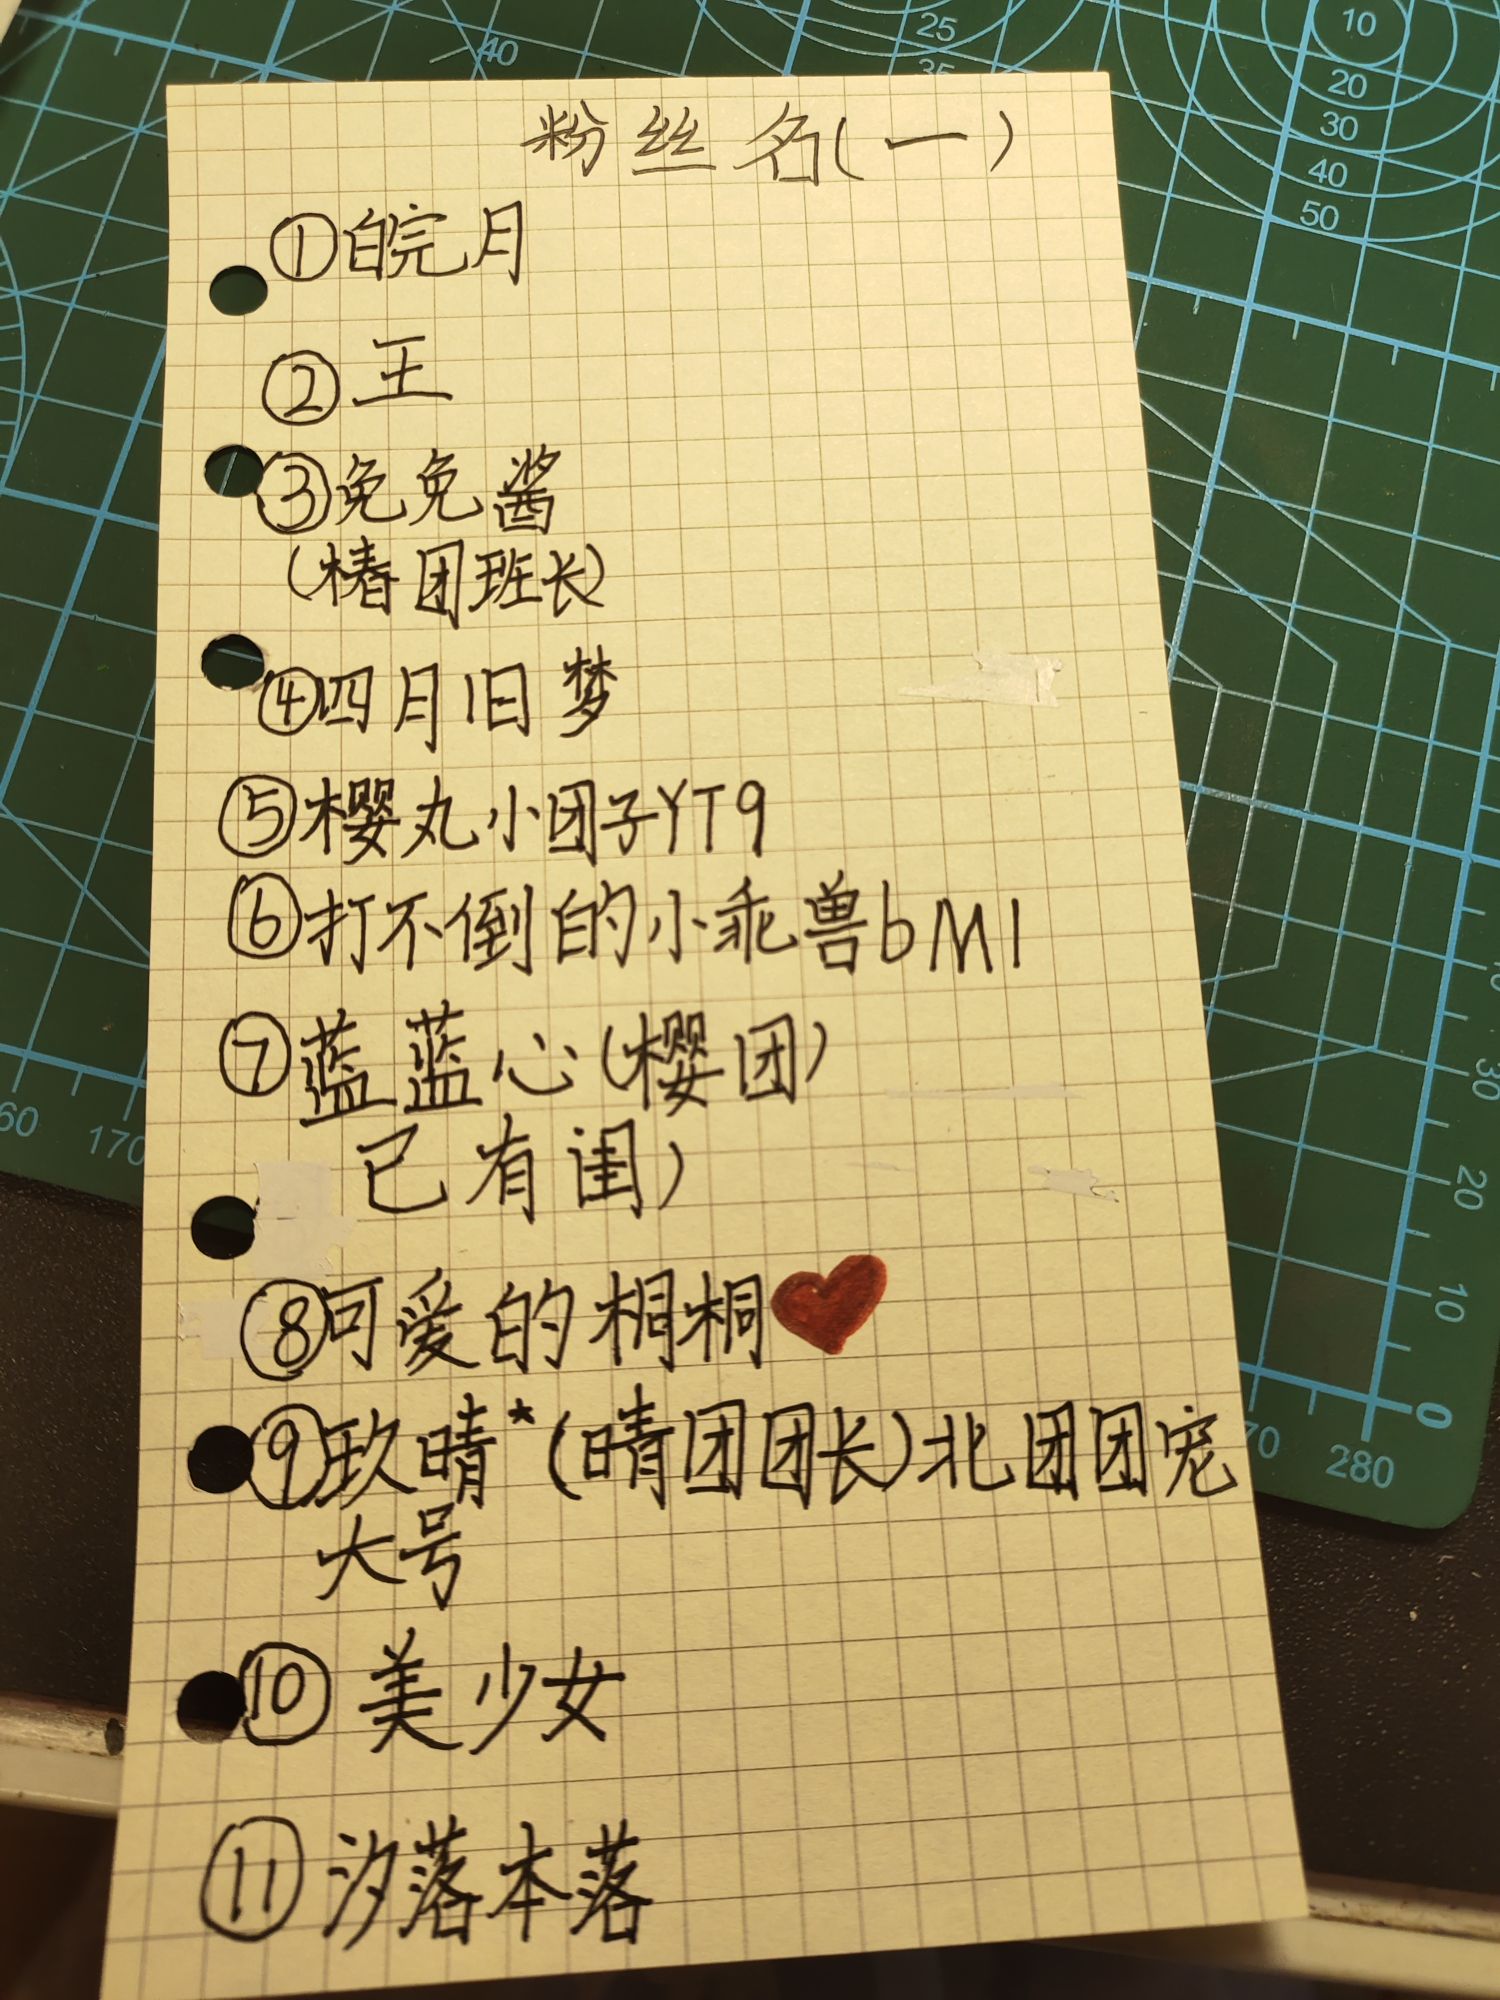 粉丝名(一)
①皖月
②王
③免免酱
(椿团班长)
④四月旧梦
⑤樱丸小团子YT9
⑥打不倒的小乖兽bM1
⑦蓝蓝心(樱团)
已有闺)
⑧可爱的桐桐❤
⑨玖晴*(晴团团长)北团团宠
大号
⑩美少女
⑪汐落本落
40
25
35
10
20
30
40
50
60
170
30
20
10
0
70
280